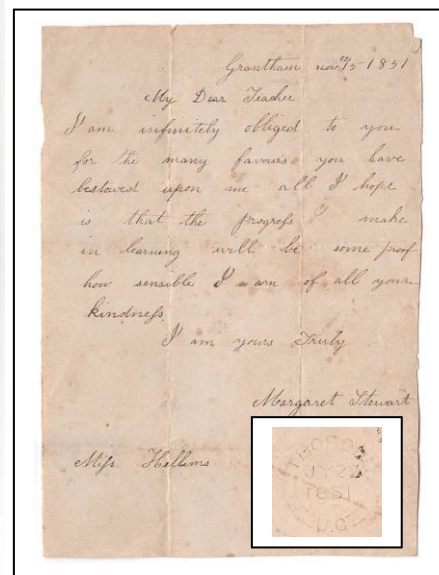 Grantham nov 15 1851
My Dear Teacher
I am infinitely obliged to you
for the many favours you have
bestowed upon me all I hope
is that the progress I make
in learning will be some proof
how sensible I am of all your
kindness
I am yours Truly
Margaret Stewart
Miss Hellems
22
1851
U.C